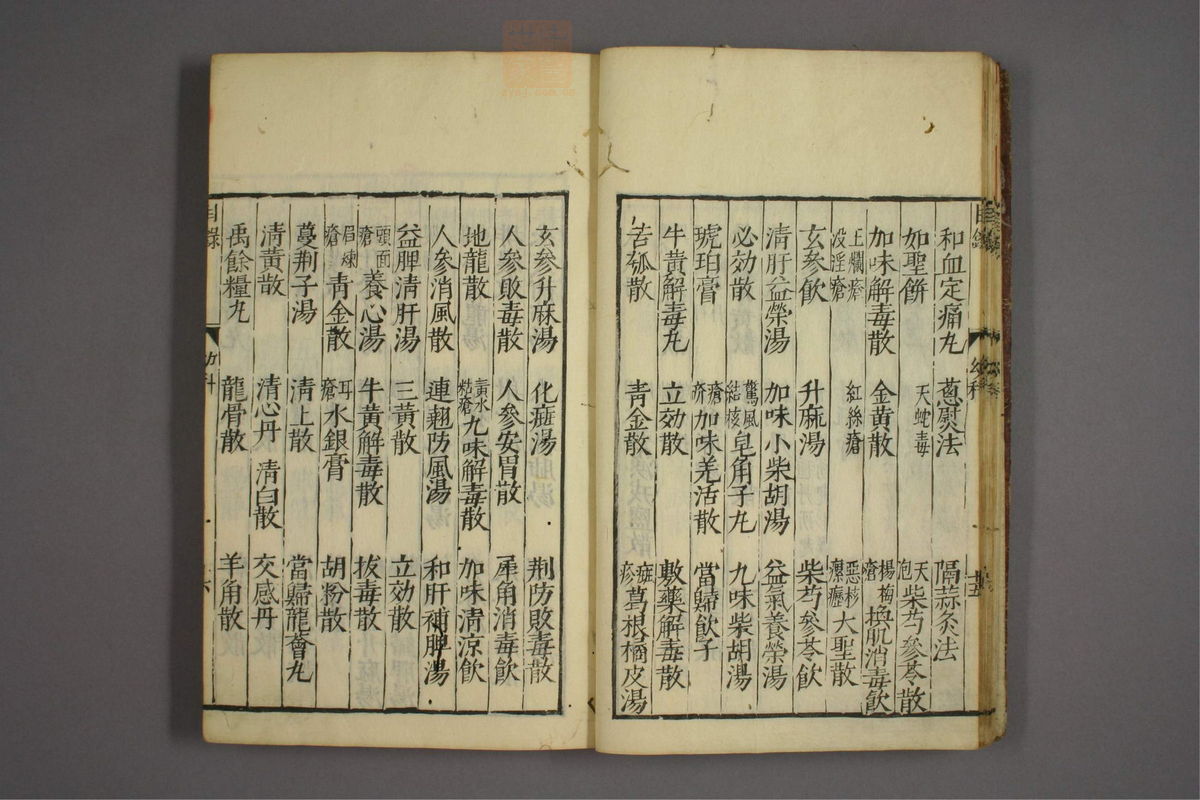 和血定痛丸 葱熨法 隔蒜灸法
如聖餅 天蛇毒 天疱柴芍參苓散
加味解毒散 金黄散 楊梅瘡換肌消毒飲
王爛瘡 浸淫瘡 紅絲瘡 惡核瘰癧大聖散
玄參飲 升麻湯 柴芍參苓飲
清肝益榮湯 加味小柴胡湯 益氣養榮湯
必効散 驚風結核皂角子丸 九味柴胡湯
琥珀膏 瘡疥加味羌活散 當歸飲子
牛黄解毒丸 立効散 敷藥解毒散
苦瓠散 青金散 痲疹葛根橘皮湯
玄參升麻湯 化癍湯 荆防敗毒散
人參敗毒散 人參安胃散 犀角消毒飲
地龍散 黄水粘瘡九味解毒散 加味清涼飲
人參消風散 連翹防風湯 和肝補脾湯
益脾清肝湯 三黄散 立効散
頭面瘡養心湯 牛黄解毒散 拔毒散
眉煉瘡青金散 耳瘡水銀膏 胡粉散
蔓荆子湯 清上散 當歸龍薈丸
清黄散 清心丹 清白散 交感丹
禹餘糧丸 龍骨散 羊角散
目錄